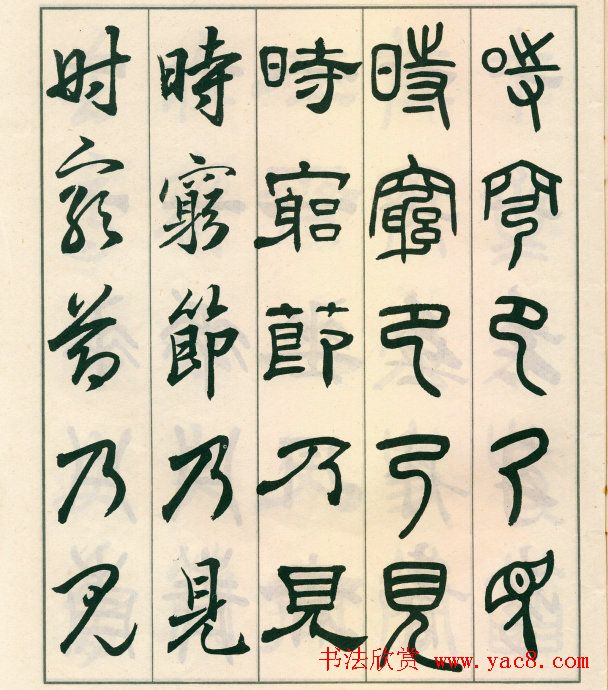 時窮節乃見
時窮節乃見
時窮節乃見
時窮節乃見
时窮節乃見
书法欣赏 www.yac8.com